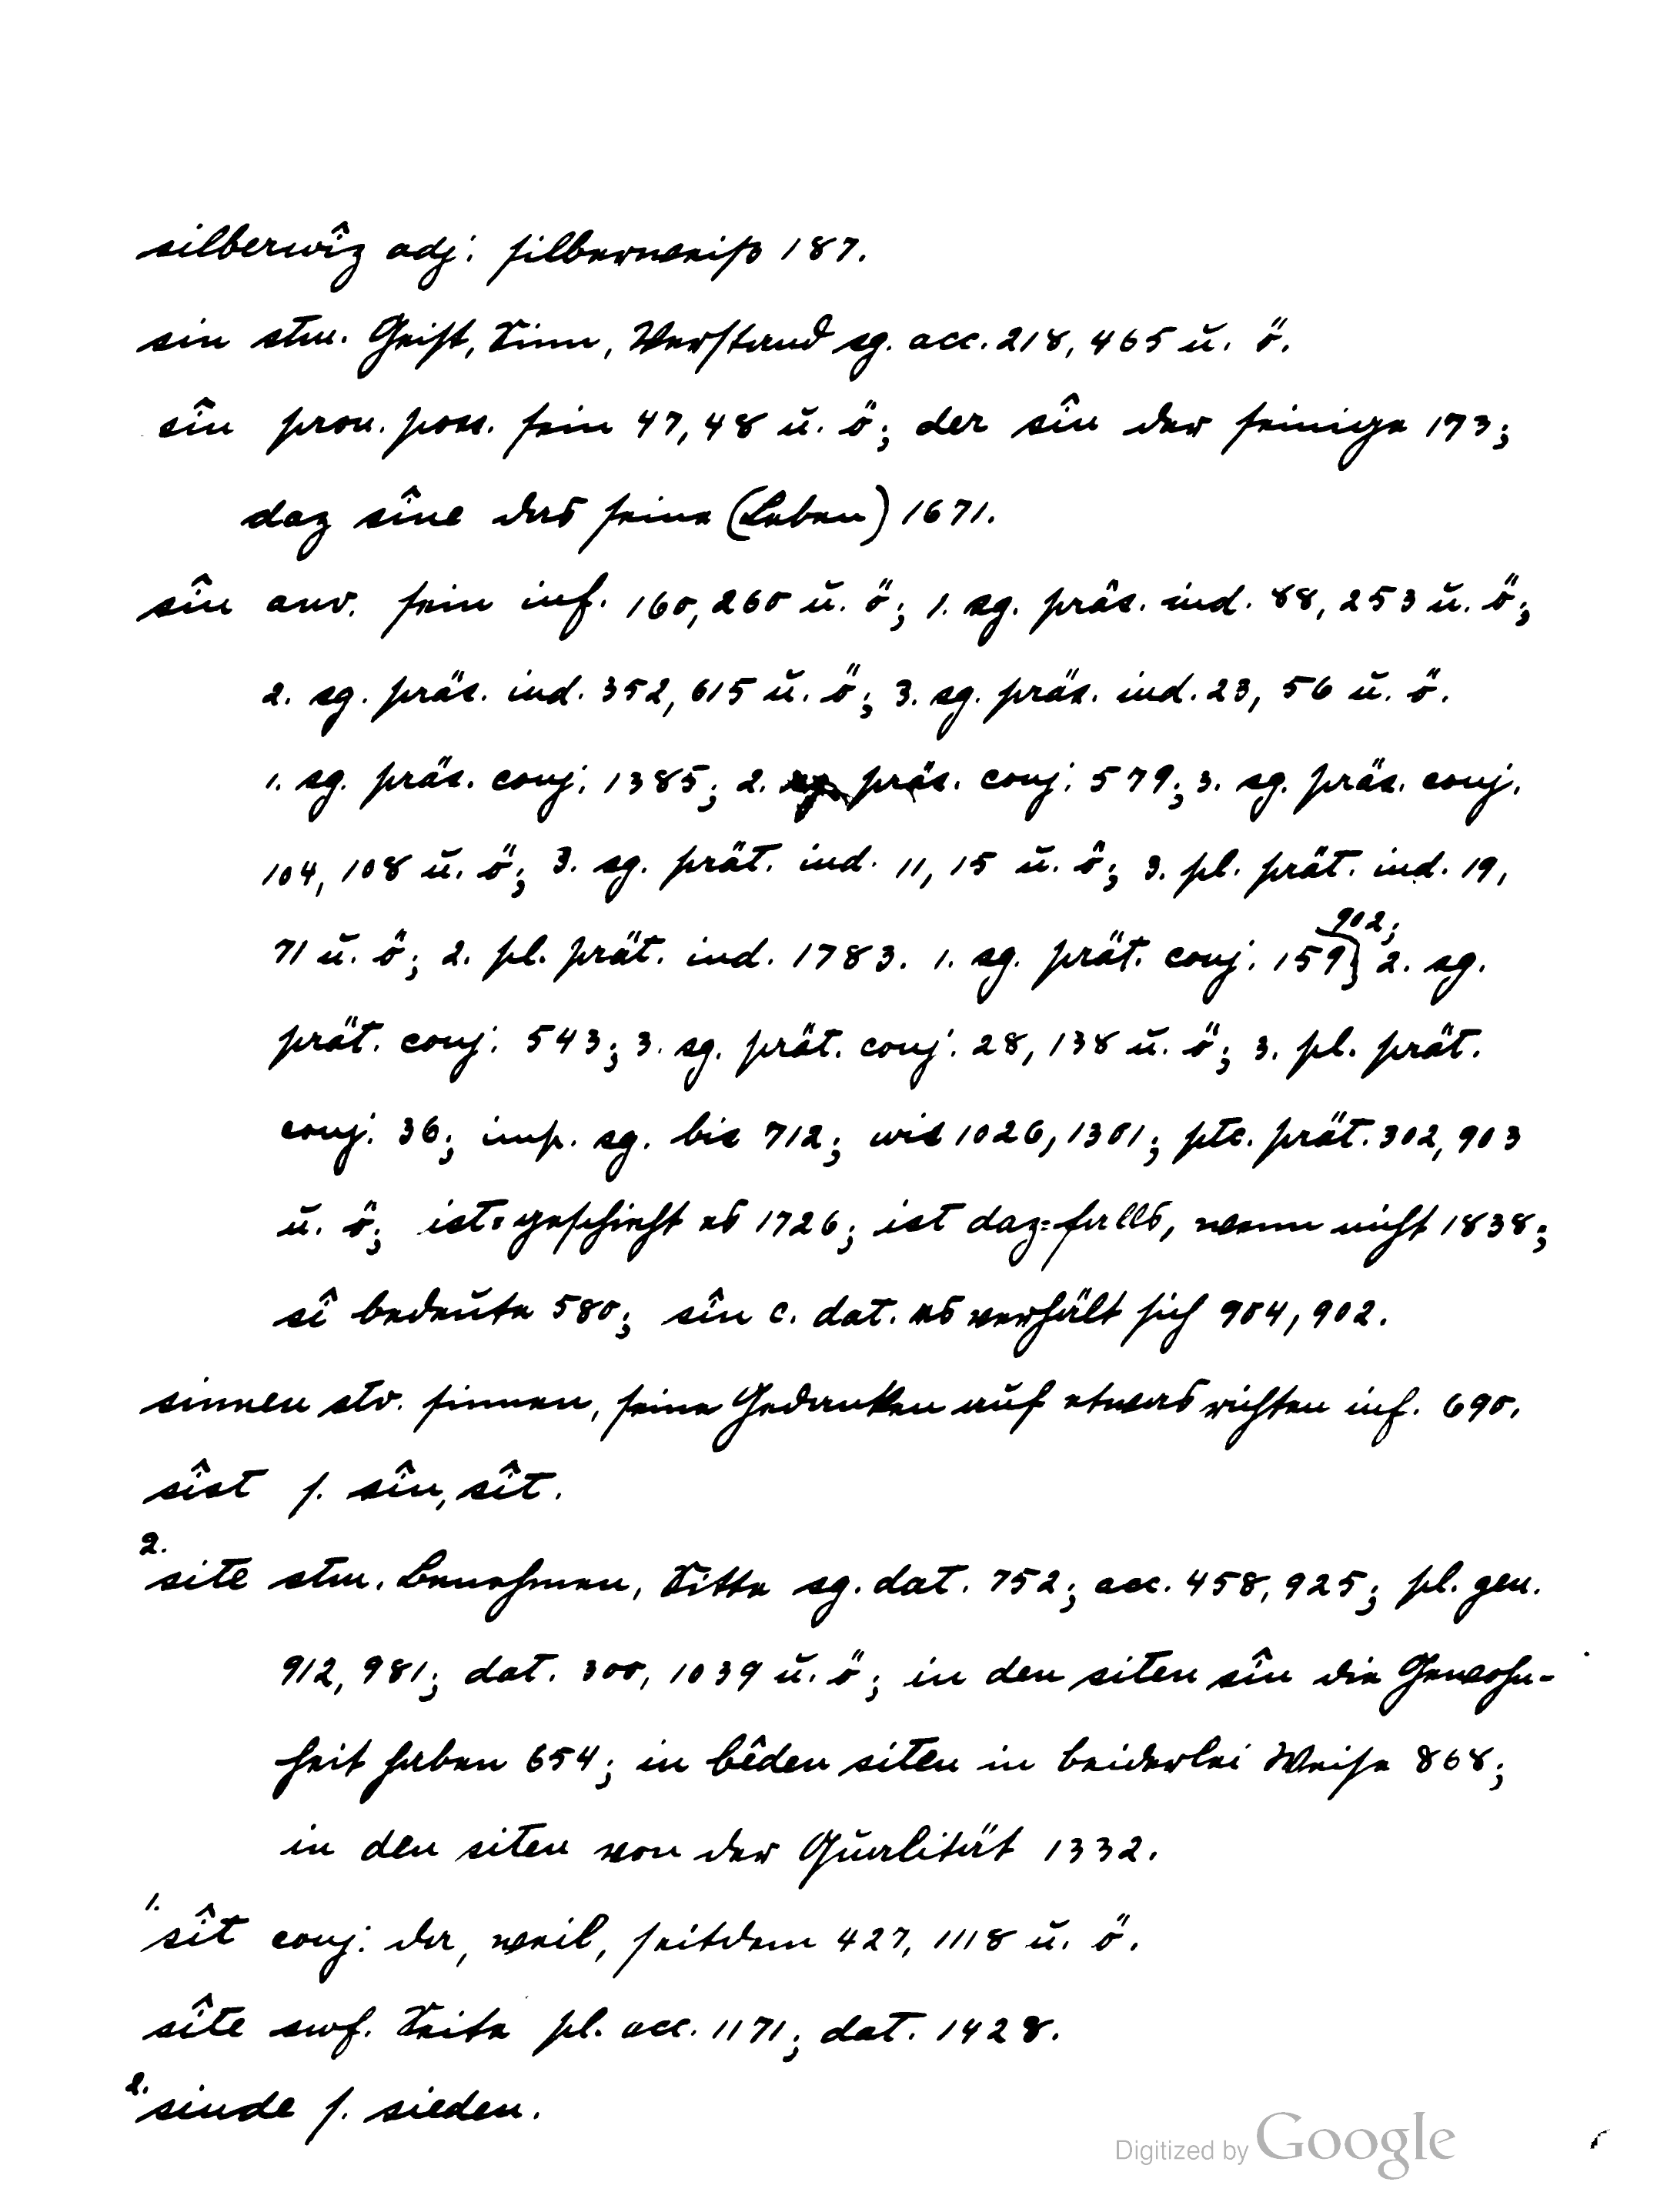 silberwîz adj. silberweiß 187.
sin stm. Geist, Sinn, Verstand sg. acc. 218, 465 u. ö.
sîn pron. poss. sein 47, 48 u. ö; der sîn der seinige 173;
daz sîne das seine (Leben) 1671.
sîn anv. sein inf. 160, 260 u. ö; 1. sg. präs. ind. 88, 253 u. ö;
2. sg. präs. ind. 352, 615 u. ö; 3. sg. präs. ind. 23, 56 u. ö.
1. sg. präs. conj. 1385; 2. sg. präs. conj. 579; 3. sg. präs. conj.
104, 108 u. ö; 3. sg. prät. ind. 11, 15 u. ö; 3. pl. prät. ind. 19,
902;
71 u. ö; 2. pl. prät. ind. 1783. 1. sg. prät. conj. 159; 2. sg.
prät. conj. 543; 3. sg. prät. conj. 28, 138 u. ö; 3. pl. prät.
conj. 36; imp. sg. bis 712; wis 1026, 1301; ptc. prät. 302, 903
u. ö; ist = geschieht es 1726; ist daz = falls, wenn nicht 1838;
sî bedeute 580; sîn c. dat. es verhält sich 904, 902.
sinnen stv. sinnen, seine Gedanken auf etwas richten inf. 690.
sîst s. sîn, sît.
2. site stm. Benehmen, Sitte sg. dat. 752; acc. 458, 925; pl. gen.
912, 981; dat. 300, 1039 u. ö; in den siten sîn die Gewohn-
heit haben 654; in bêden siten in beiderlei Weise 868;
in den siten von der Qualität 1332.
1. sît conj. da, weil, seitdem 427, 1118 u. ö.
sîte swf. Seite pl. acc. 1171; dat. 1428.
2. siude s. sieden.
Digitized by Google